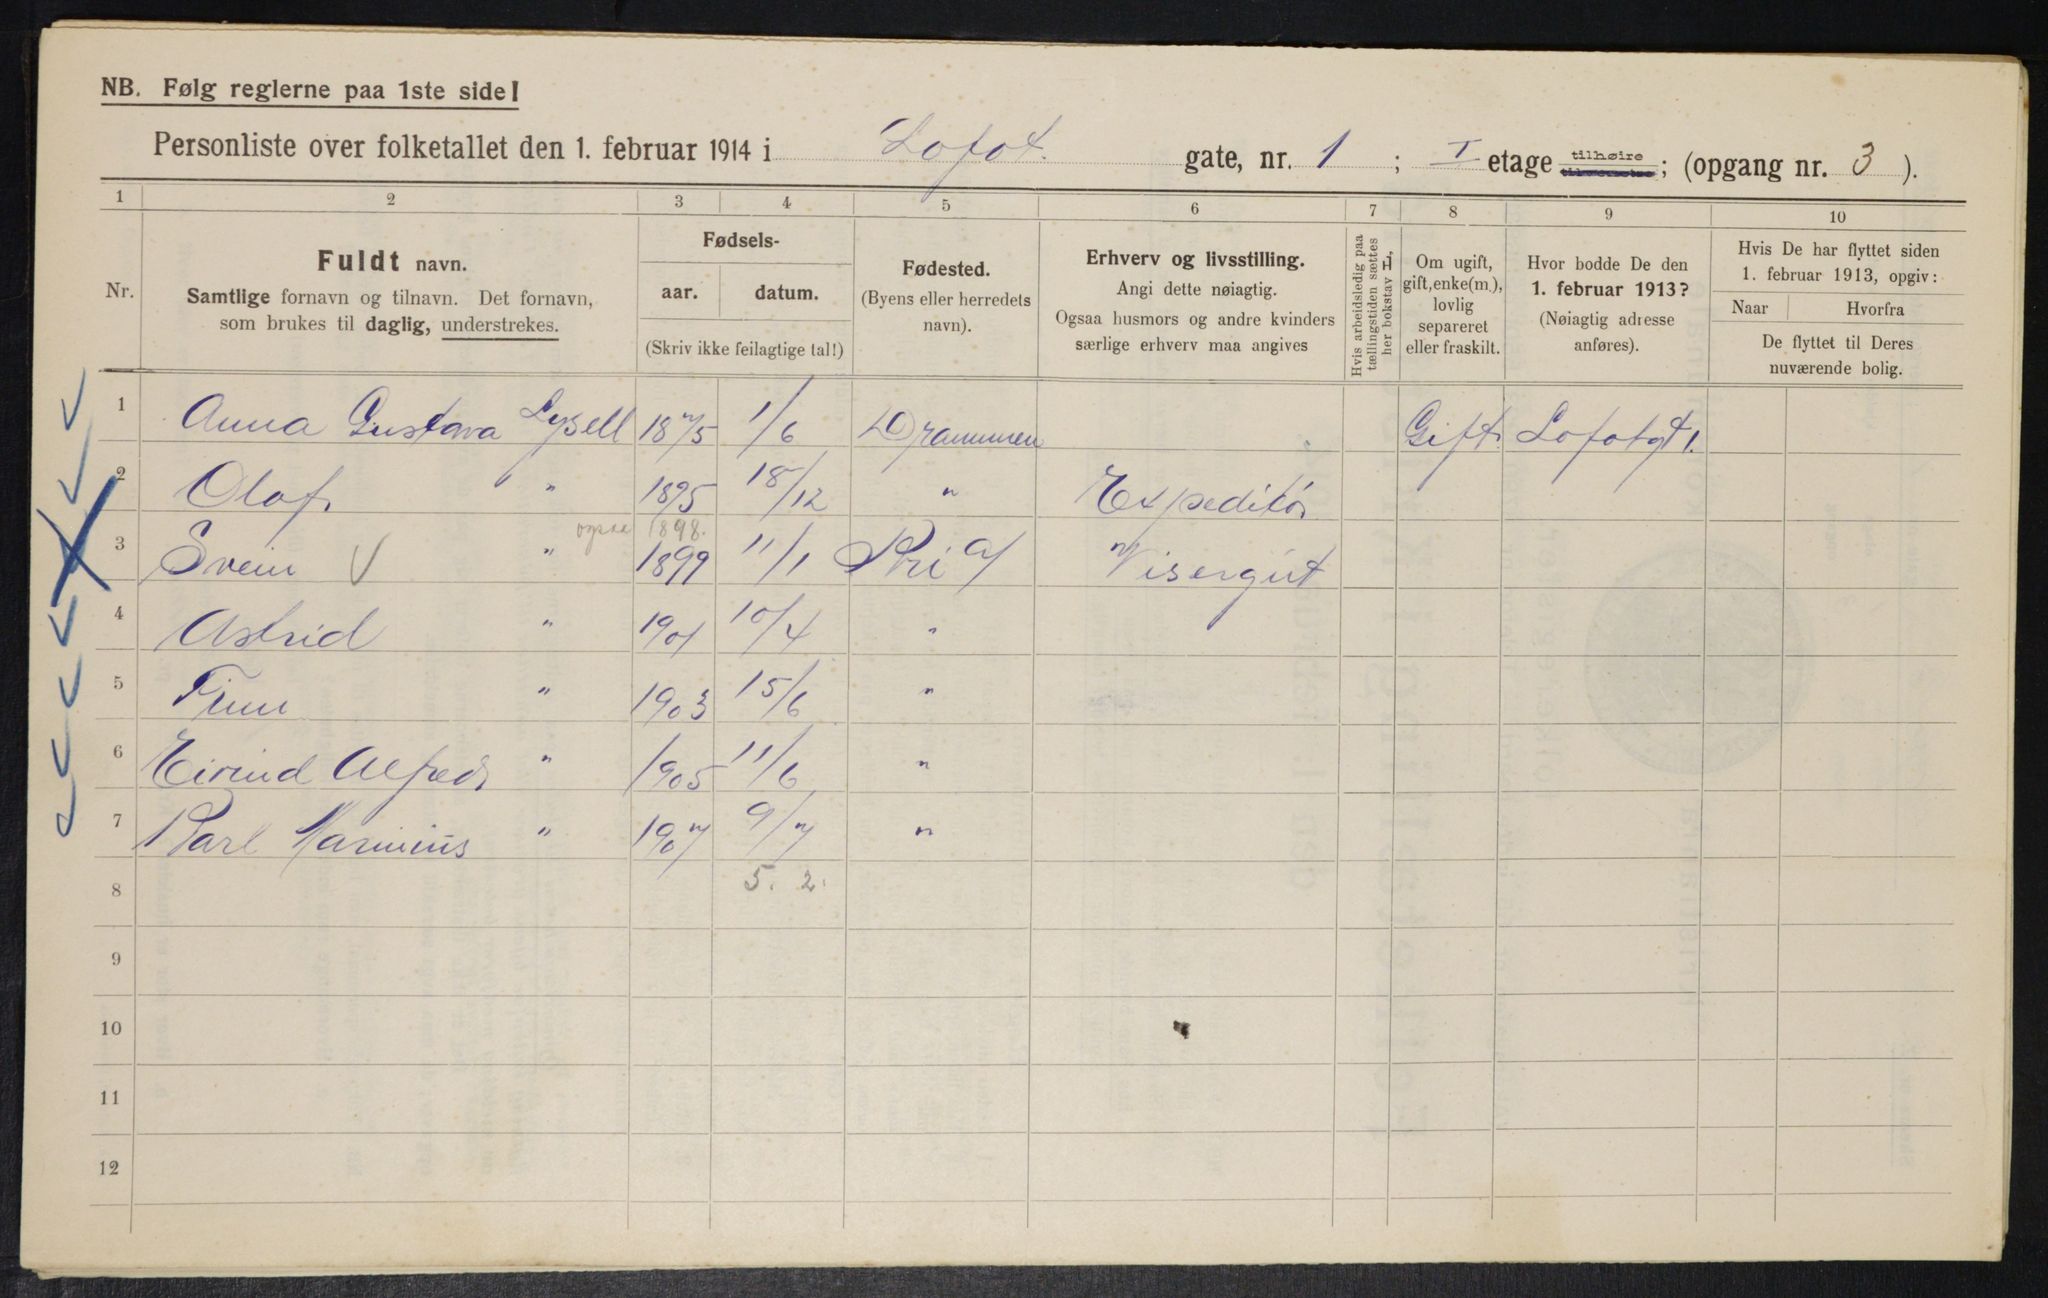 NB. Følg reglerne paa 1ste side!
Personliste over folketallet den 1. februar 1914 i Lofot. gate, nr. 1 ; I etage tilhøire ; (opgang nr. 3 ).
1 2 3 4 5 6 7 8 9 10
Nr.
Fuldt navn.
Samtlige fornavn og tilnavn. Det fornavn,
som brukes til daglig, understrekes.
Fødsels-
aar. datum.
(Skriv ikke feilagtige tal!)
Fødested.
(Byens eller herredets
navn).
Erhverv og livsstilling.
Angi dette nøiagtig.
Ogsaa husmors og andre kvinders
særlige erhverv maa angives
Hvis arbeidsledig paa
tællingstiden sættes
her bokstav H.
Om ugift,
gift, enke(m.),
lovlig
separeret
eller fraskilt.
Hvor bodde De den
1. februar 1913?
(Nøiagtig adresse
anføres).
Hvis De har flyttet siden
1. februar 1913, opgiv:
Naar Hvorfra
De flyttet til Deres
nuværende bolig.
1 Anna Gustava Lysell 1875 1/6 Drammen Gift Lofotgt 1.
2 Olaf " 1895 18/12 " Expeditør
ogsaa 1898.
3 Svein " 1899 11/1 Kri a/ Visergut
4 Astrid " 1901 10/4 "
5 Finn " 1903 15/6 "
6 Eivind Alfred " 1905 11/6 "
7 Karl Marinius " 1907 9/7 "
8 5. 2.
9
10
11
12